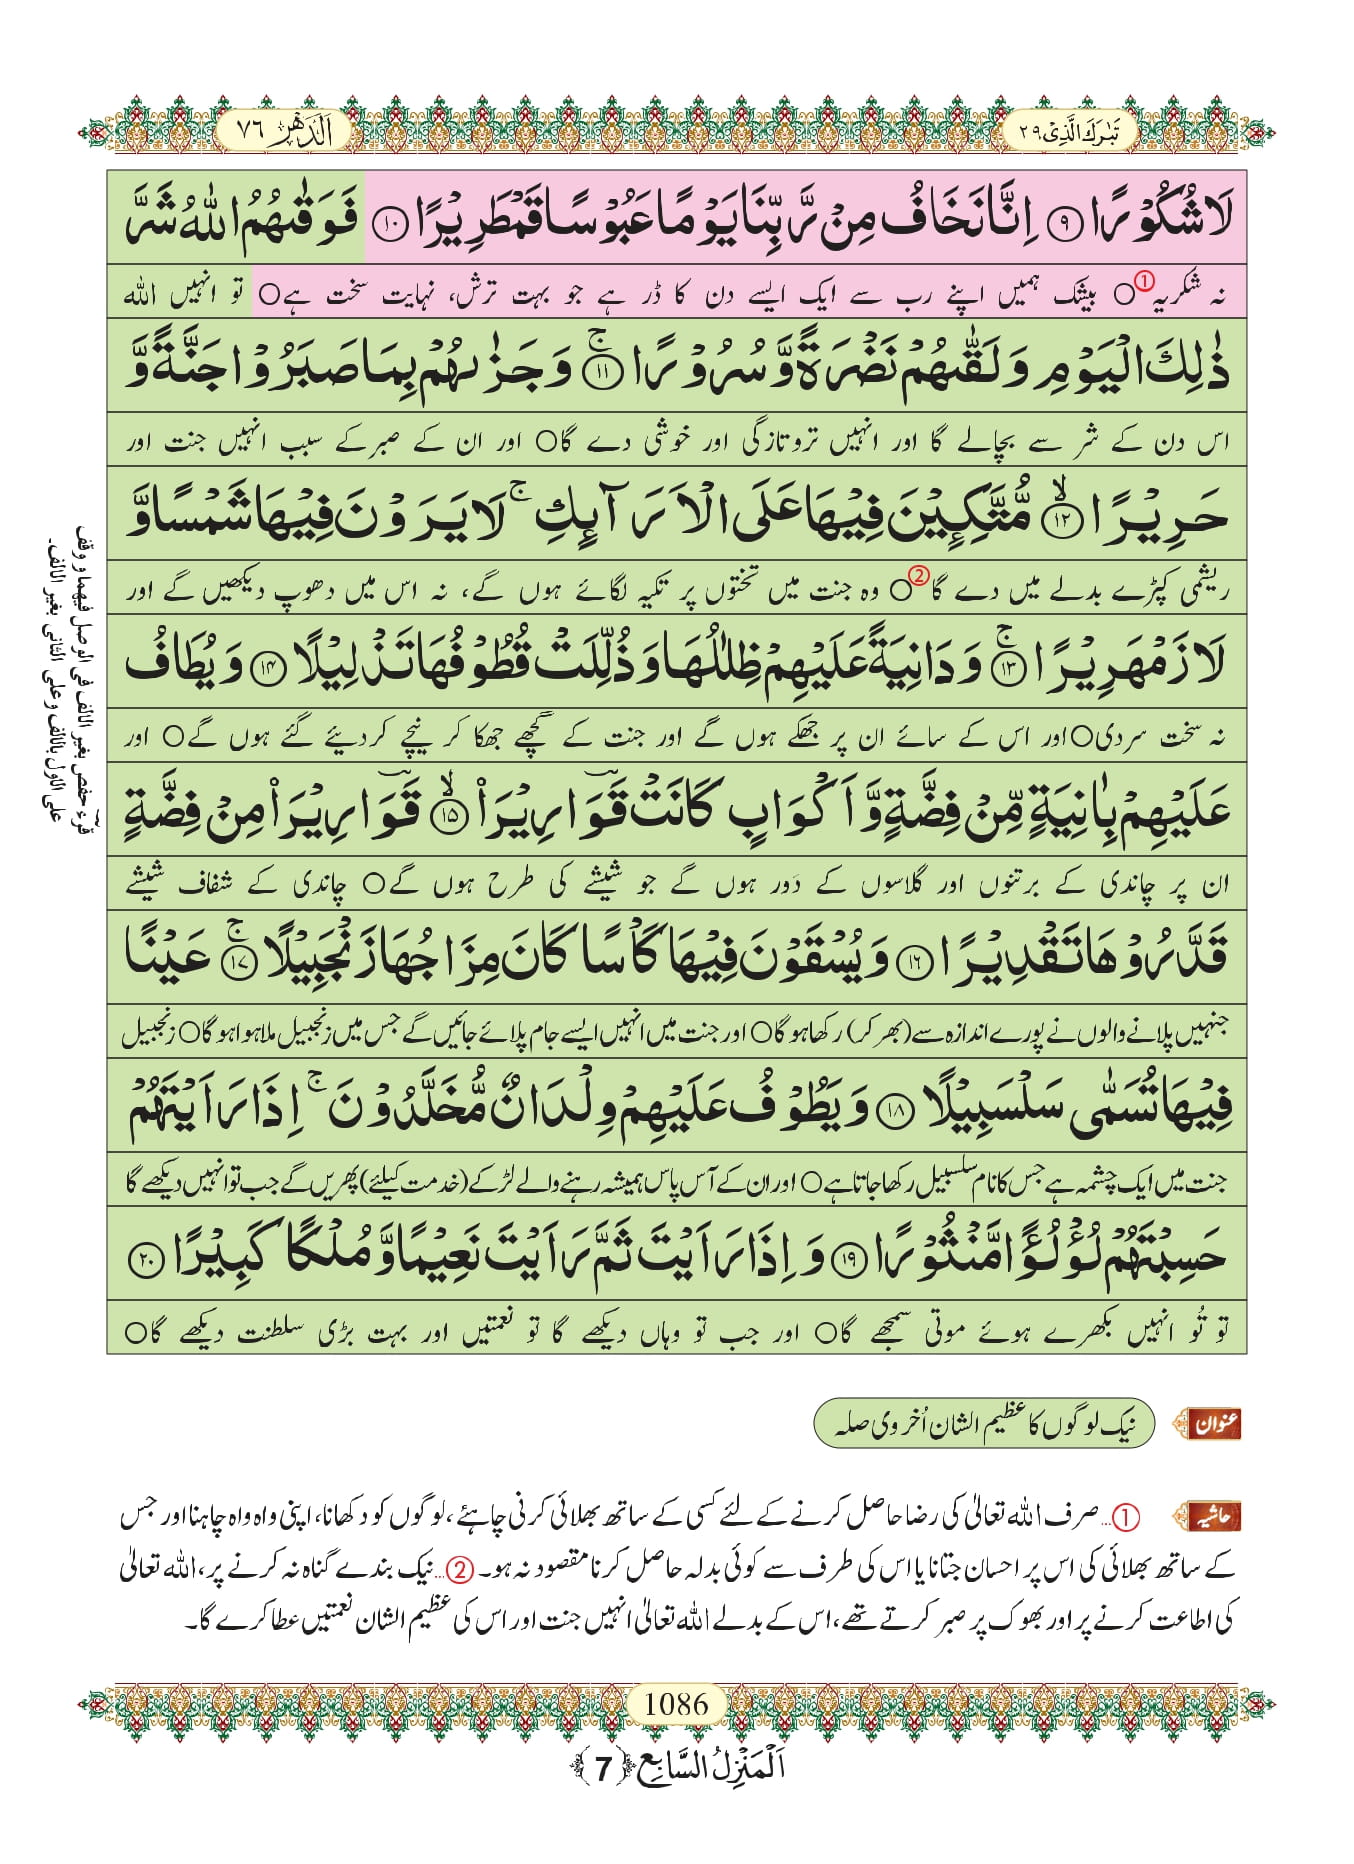 تَبٰرَكَ الَّذِیْ ۲۹
اَلدَّهْر ۷۶
لَا شُكُوْرًا ۹ اِنَّا نَخَافُ مِنْ رَّبِّنَا یَوْمًا عَبُوْسًا قَمْطَرِیْرًا ۱۰ فَوَقٰىهُمُ اللّٰهُ شَرَّ
نہ شکریہ ① ○ بیشک ہمیں اپنے رب سے ایک ایسے دن کا ڈر ہے جو بہت ترش، نہایت سخت ہے ○ تو انہیں اللہ
ذٰلِكَ الْیَوْمِ وَ لَقّٰىهُمْ نَضْرَةً وَّ سُرُوْرًا ۚ ۱۱ وَ جَزٰىهُمْ بِمَا صَبَرُوْا جَنَّةً وَّ
اس دن کے شر سے بچالے گا اور انہیں تروتازگی اور خوشی دے گا ○ اور ان کے صبر کے سبب انہیں جنت اور
حَرِیْرًا ۙ ۱۲ مُّتَّكِـٕیْنَ فِیْهَا عَلَى الْاَرَآىٕكِ ۚ لَا یَرَوْنَ فِیْهَا شَمْسًا وَّ
ریشمی کپڑے بدلے میں دے گا ② ○ وہ جنت میں تختوں پر تکیہ لگائے ہوں گے، نہ اس میں دھوپ دیکھیں گے اور
لَا زَمْهَرِیْرًا ۚ ۱۳ وَ دَانِیَةً عَلَیْهِمْ ظِلٰلُهَا وَ ذُلِّلَتْ قُطُوْفُهَا تَذْلِیْلًا ۱۴ وَ یُطَافُ
نہ سخت سردی ○ اور اس کے سائے ان پر جھکے ہوں گے اور جنت کے گچھے جھکا کر نیچے کردیئے گئے ہوں گے ○ اور
عَلَیْهِمْ بِاٰنِیَةٍ مِّنْ فِضَّةٍ وَّ اَكْوَابٍ كَانَتْ قَؔوَارِیْرَا۠ ۙ ۱۵ قَؔوَارِیْرَاۡ مِنْ فِضَّةٍ
ان پر چاندی کے برتنوں اور گلاسوں کے دَور ہوں گے جو شیشے کی طرح ہوں گے ○ چاندی کے شفاف شیشے
قَدَّرُوْهَا تَقْدِیْرًا ۱۶ وَ یُسْقَوْنَ فِیْهَا كَاْسًا كَانَ مِزَاجُهَا زَنْجَبِیْلًا ۚ ۱۷ عَیْنًا
جنہیں پلانے والوں نے پورے اندازہ سے (بھر کر) رکھا ہوگا ○ اور جنت میں انہیں ایسے جام پلائے جائیں گے جس میں زنجبیل ملا ہوا ہوگا ○ زنجبیل
فِیْهَا تُسَمّٰى سَلْسَبِیْلًا ۱۸ وَ یَطُوْفُ عَلَیْهِمْ وِلْدَانٌ مُّخَلَّدُوْنَ ۚ اِذَا رَاَیْتَهُمْ
جنت میں ایک چشمہ ہے جس کا نام سلسبیل رکھا جاتا ہے ○ اور ان کے آس پاس ہمیشہ رہنے والے لڑکے (خدمت کیلئے) پھریں گے جب تو انہیں دیکھے گا
حَسِبْتَهُمْ لُؤْلُؤًا مَّنْثُوْرًا ۱۹ وَ اِذَا رَاَیْتَ ثَمَّ رَاَیْتَ نَعِیْمًا وَّ مُلْكًا كَبِیْرًا ۲۰
تو تُو انہیں بکھرے ہوئے موتی سمجھے گا ○ اور جب تو وہاں دیکھے گا تو نعمتیں اور بہت بڑی سلطنت دیکھے گا ○
قرء حفص بغیر الالف فی الوصل فیہما و وقف
علی الاول بالالف وعلی الثانی بغیر الالف۔
عنوان نیک لوگوں کا عظیم الشان اُخروی صلہ
حاشیہ ①...صرف اللہ تعالیٰ کی رضا حاصل کرنے کے لئے کسی کے ساتھ بھلائی کرنی چاہئے، لوگوں کو دکھانا، اپنی واہ واہ چاہنا اور جس
کے ساتھ بھلائی کی اس پر احسان جتانا یا اس کی طرف سے کوئی بدلہ حاصل کرنا مقصود نہ ہو۔ ②...نیک بندے گناہ نہ کرنے پر، اللہ تعالیٰ
کی اطاعت کرنے پر اور بھوک پر صبر کرتے تھے، اس کے بدلے اللہ تعالیٰ انہیں جنت اور اس کی عظیم الشان نعمتیں عطا کرے گا۔
1086
اَلْمَنْزِلُ السَّابِع ﴿7﴾